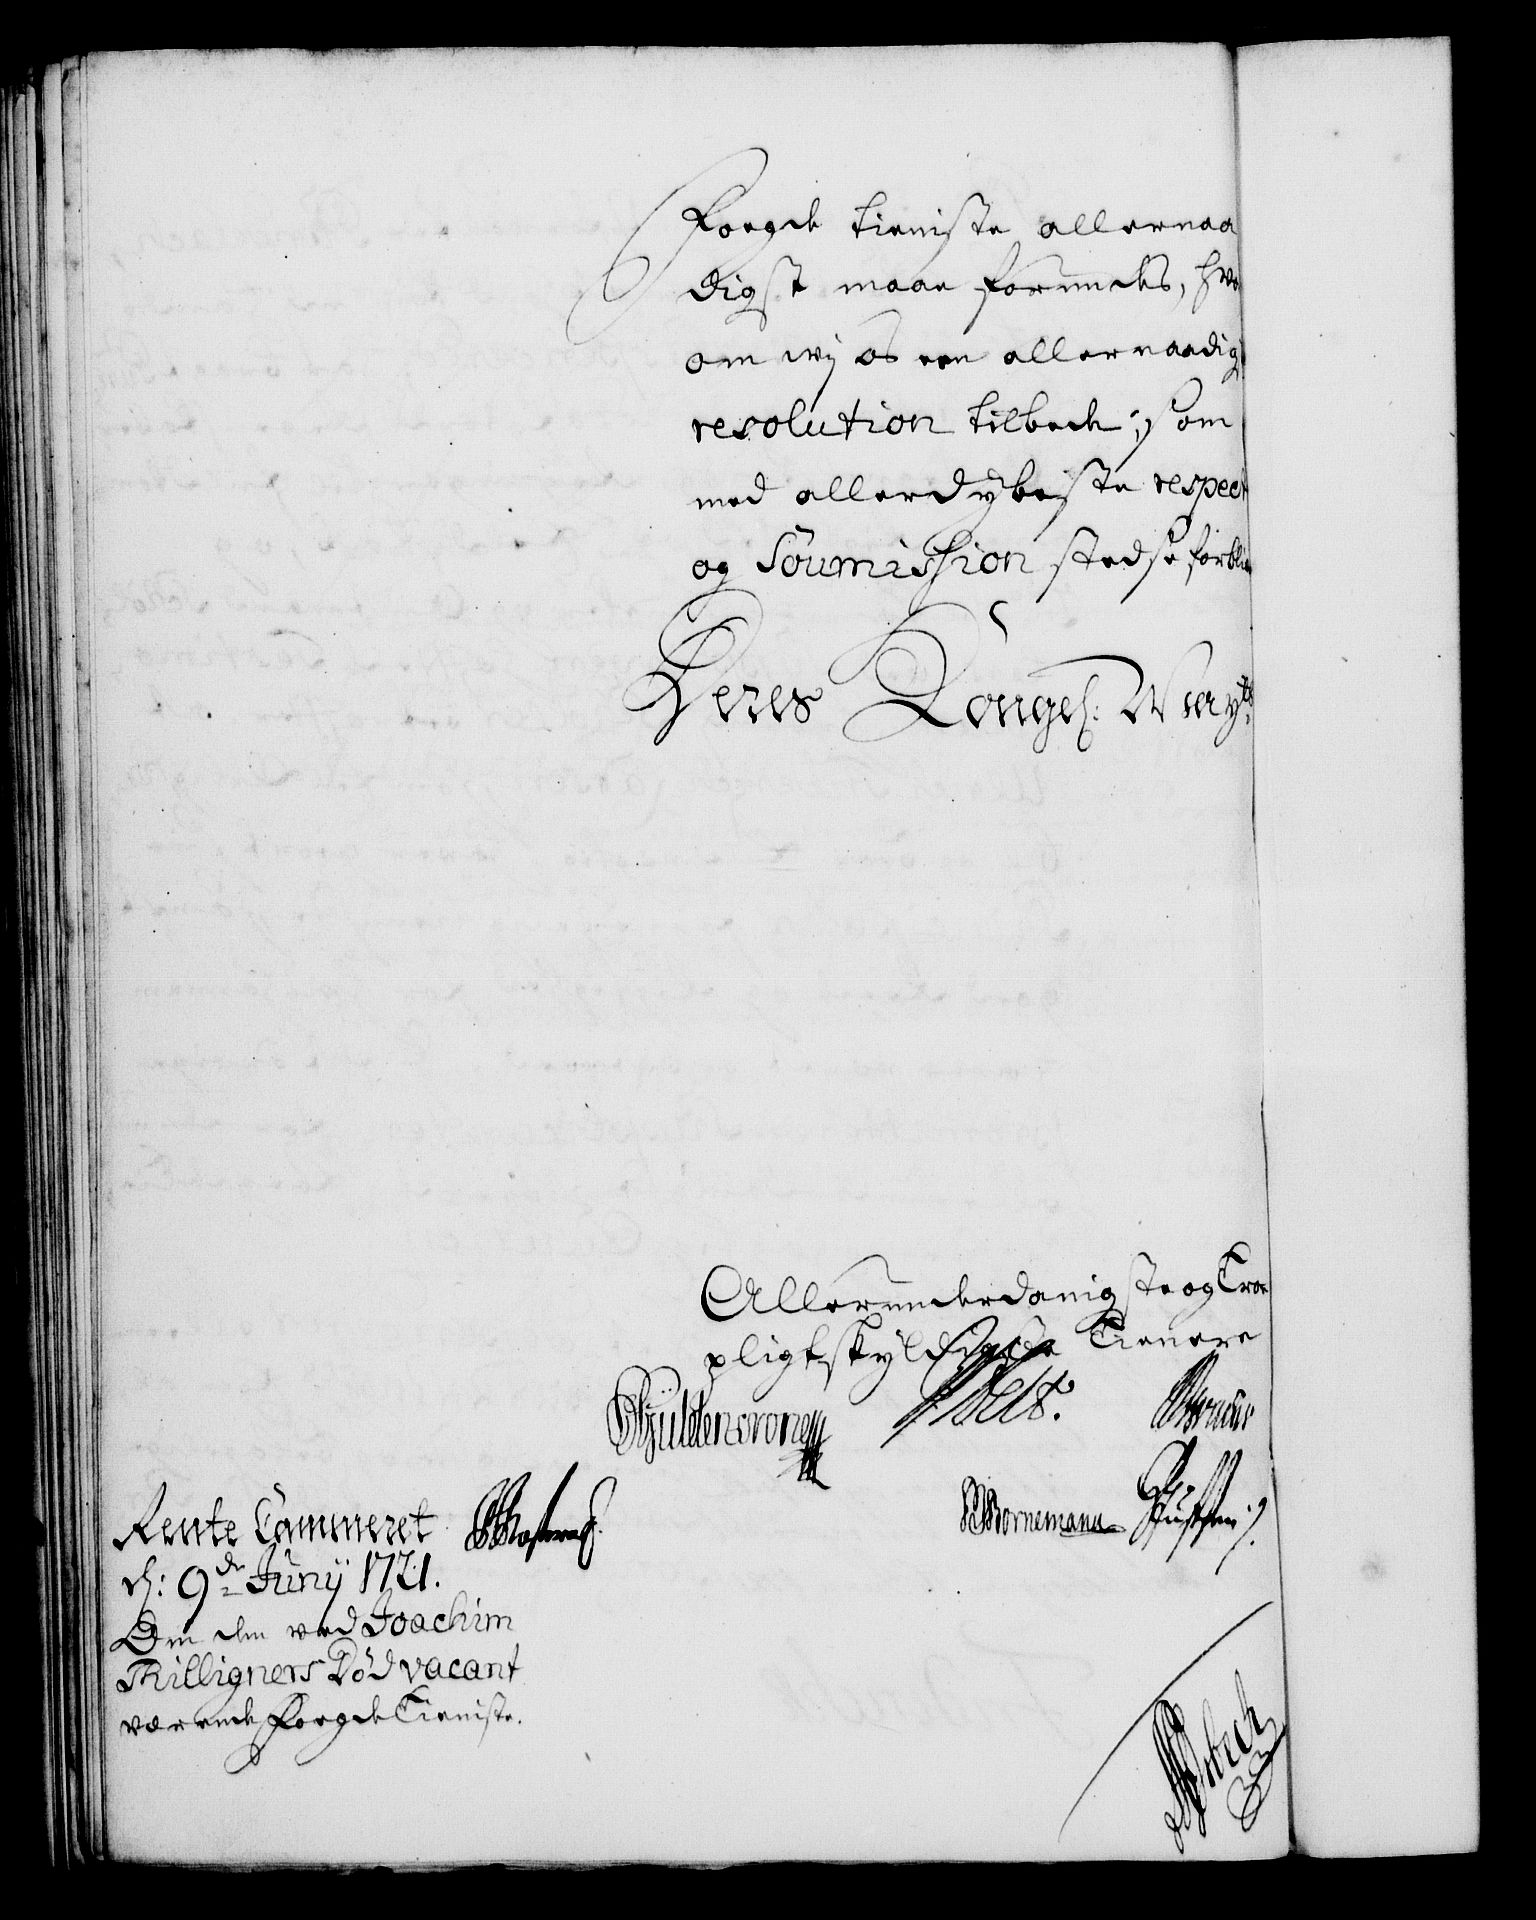 Foegde tieniste allernaa
digst maae forundes, hvo
om wj os een allernaadig
resolution tilbede, som
med allerdybeste respect
og Soumission stedse forbliv
Deres Kongel: Mayts
Allerunderdanigste og Troe
pligtskyldigste Tienere
Gyldencrone
Bornemann
Rente Cammeret
d: 9de Junij 1721.
Om den ved Joachim
Rilligners Död vacant
værende Foegde Tieniste.